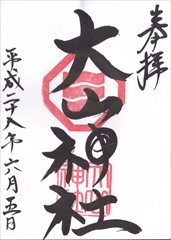 奉拝
大山神社
平成二十八年六月五日